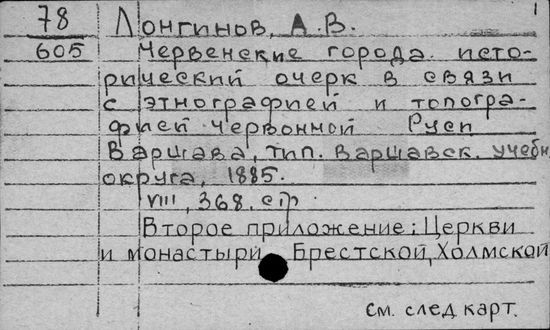 78 Лонгинов, А.В. 1
605 Червенские города. исто-
рический очерк в связи
с этнографией и топогра-
фией Червонной Руси
Варшава, тип. Варшавск. учебн
округа, 1885.
VIII, 368. стр
Второе приложение: Церкви
и монастыри Брестской, Холмской
См. след карт.